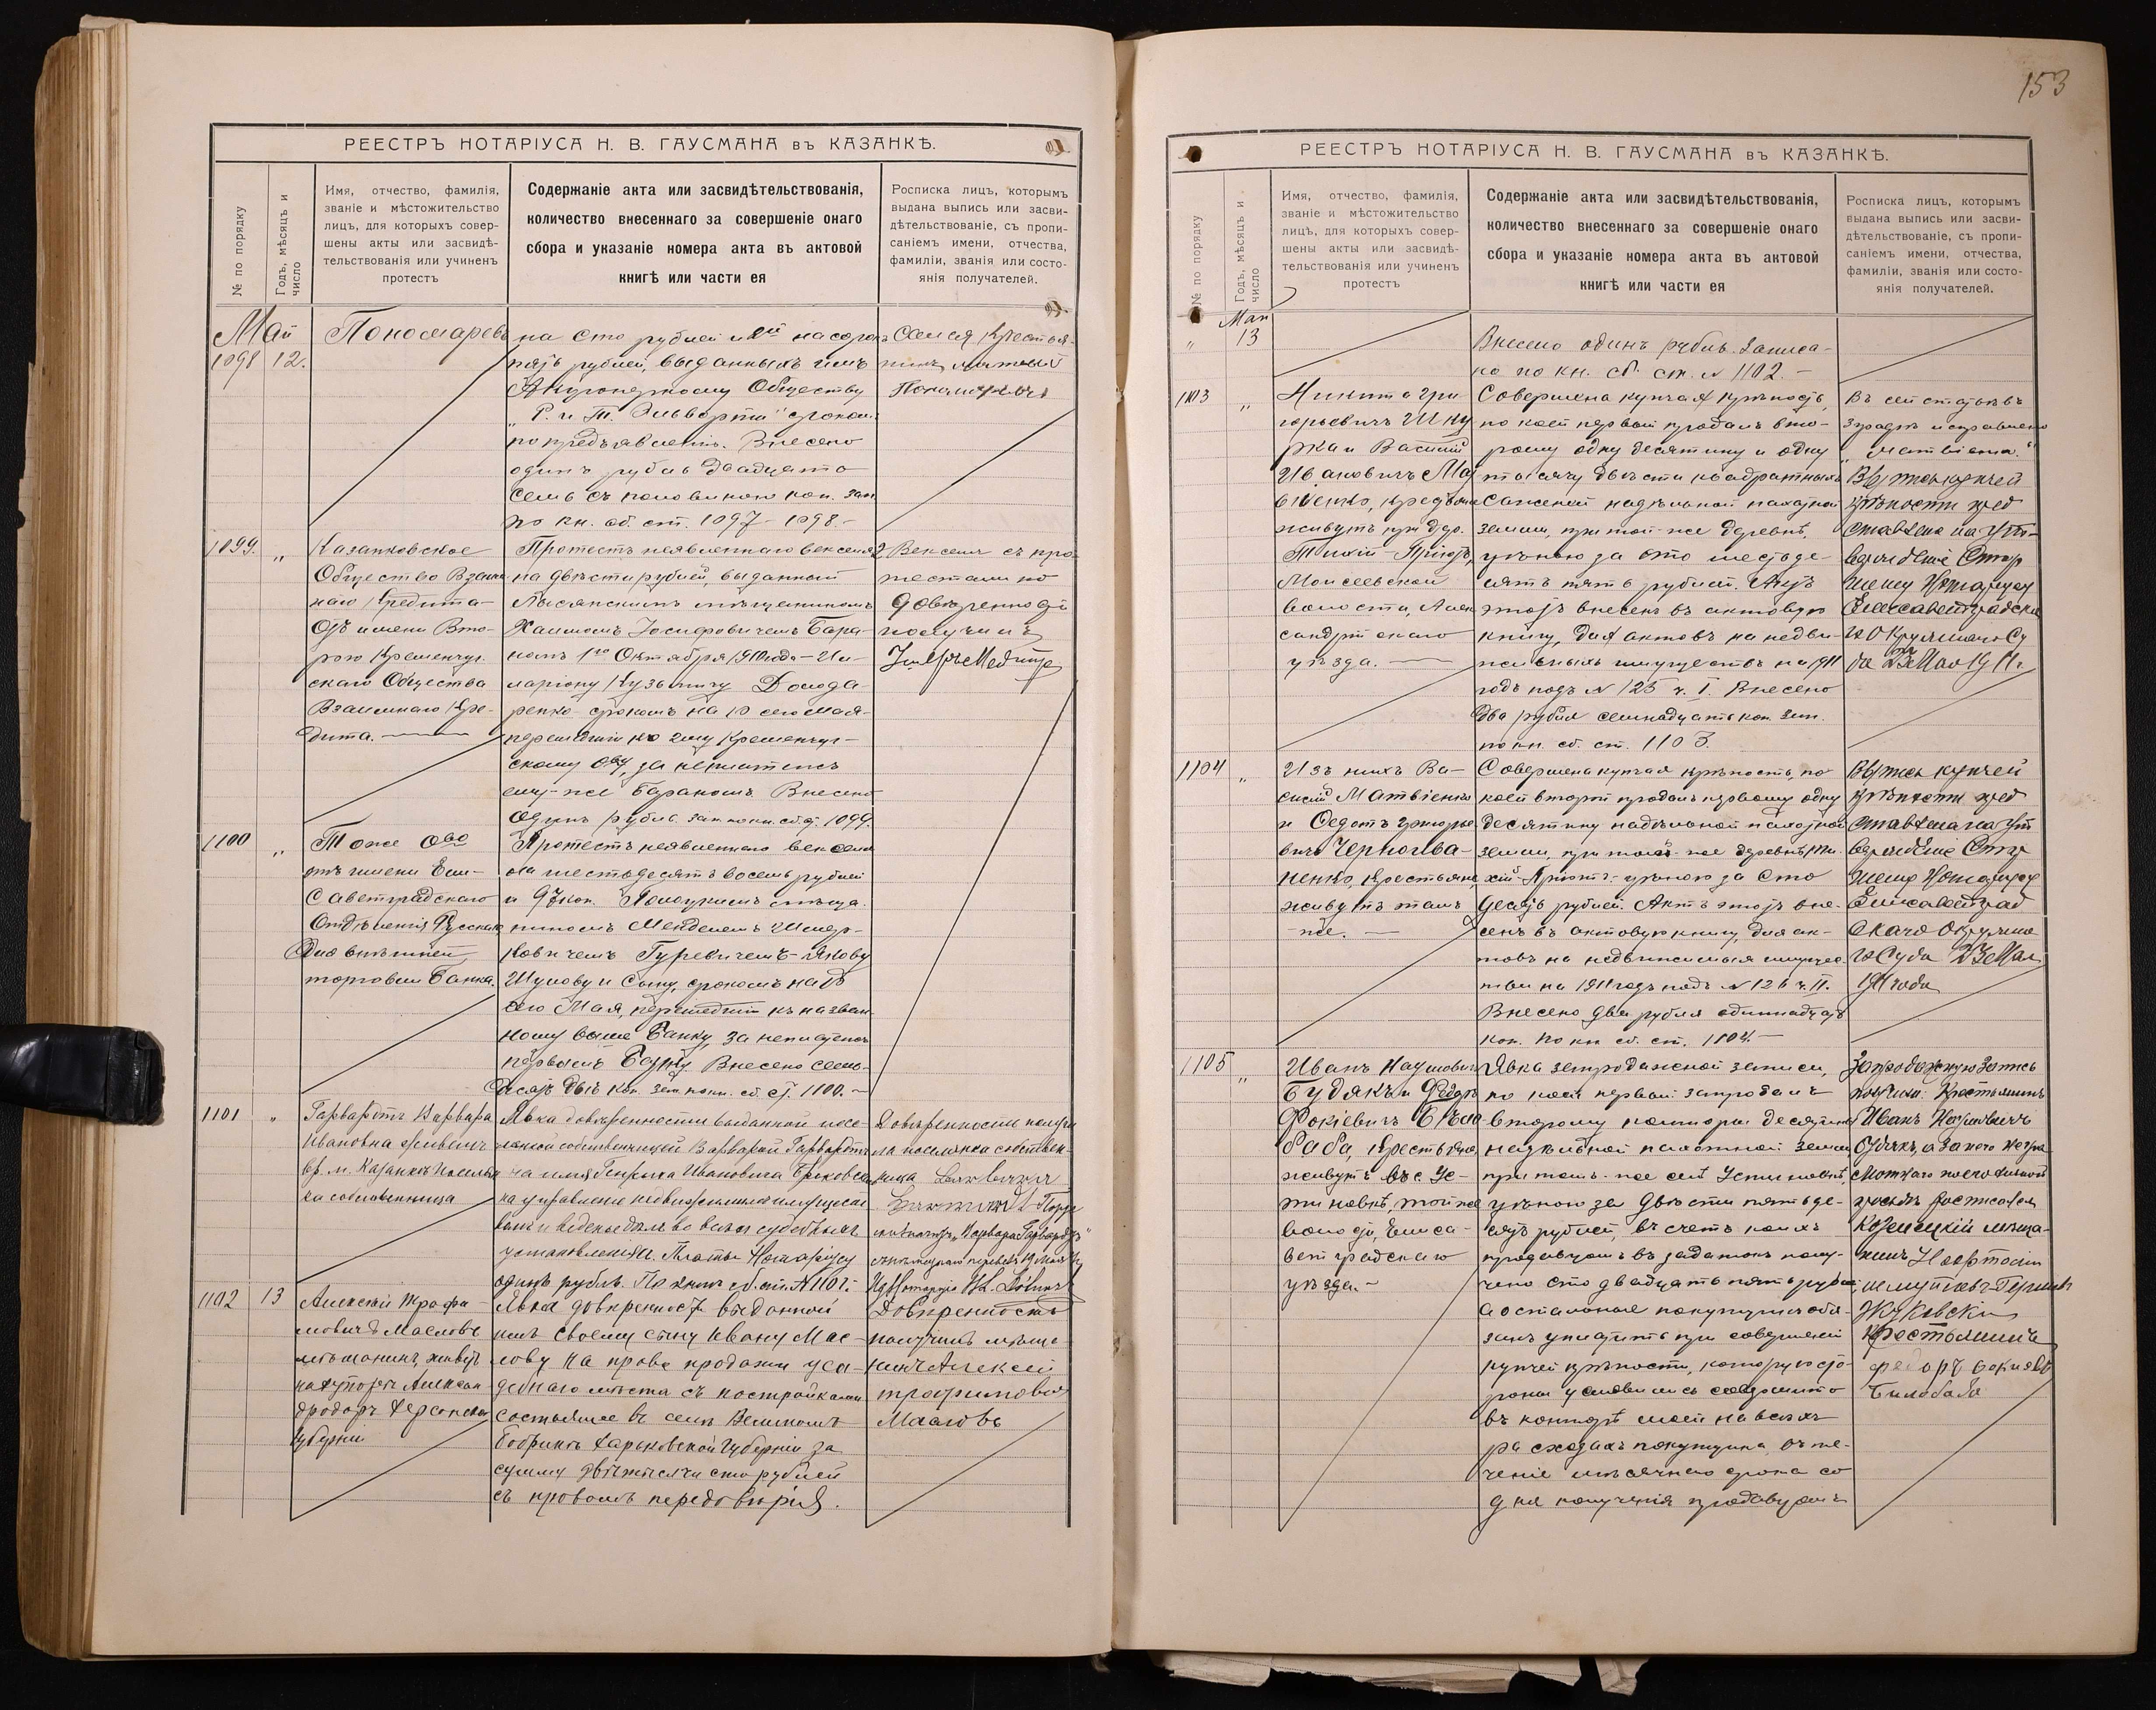 153
РЕЕСТРЪ НОТАРІУСА Н. В. ГАУСМАНА въ КАЗАНКѢ.
№ по порядку
Годъ, мѣсяцъ и
число
Имя, отчество, фамилія,
званіе и мѣстожительство
лицъ, для которыхъ совер-
шены акты или засвидѣ-
тельствованія или учиненъ
протестъ
Содержаніе акта или засвидѣтельствованія,
количество внесеннаго за совершеніе онаго
сбора и указаніе номера акта въ актовой
книгѣ или части ея
Росписка лицъ, которымъ
выдана выпись или засви-
дѣтельствованіе, съ пропи-
саніемъ имени, отчества,
фамиліи, званія или состо-
янія получателей.
Май
1098 12.
Пономаревъ
на сто рублей и
пять рублей, выданныхъ имъ
Акціонерному Обществу
"Р. и Т. Эльворти" срокомъ
по предъявленіи. Внесено
одинъ рубль двадцать
семь съ половиною коп. зап.
по кн. сб. ст. 1097-1098.-
1099. "
Казанковское
Общество Взаим
наго Кредита
отъ имени Вто-
рого Кременчуг-
скаго Общества
Взаимнаго Кре-
дита.
Протестъ неявленнаго векселя
на двѣсти рублей, выданный
мѣщаниномъ
Хаимомъ Іосифовичемъ Бара-
номъ 1го Октября 1910 года - Ил-
ларіону Кузьмичу Долода-
ренко срокомъ на 10 сего Мая
перешедшій ко 2му Кременчуг-
скому Обву, за неплатежъ
ему-же Бараномъ. Внесено
одинъ рубль. зап. по кн. сб. ст. 1099.
2 Векселя съ про-
тестами по
довѣренности
получилъ
1100 "
Тоже Обво
отъ имени Ели-
саветградскаго
Отдѣленія Русскаго
для внѣшней
торговли Банка.
Протестъ неявленнаго векселя
на шестьдесятъ восемь рублей
и 97 коп.
Менделемъ Шмер-
ковичемъ Гуревичемъ - Якову
и Сыну, срокомъ на 10
сего Мая, перешедшій къ назван-
ному выше Банку, за неплатежъ
первымъ Банку. Внесено семь-
десятъ двѣ коп. зап. по кн. сб. ст. 1100.-
1101 "
Гарвардтъ Варвара
Ивановна живетъ
въ м. Казанкѣ Поселян
ка собственница
Явка довѣренности выданной посе-
лянкой собственницей Варварой Гарвардтъ
на имя Генриха Ивановича
на управленіе недвижимымъ имущест
вомъ и веденіе дѣлъ во всѣхъ судебныхъ
установленіяхъ. Платы Нотаріусу
одинъ рубль. По книгѣ сб. ст. № 1101.-
Довѣренность получи
ла поселянка собствен
ница
1102 13
Алексѣй Трофи-
мовичъ Масловъ
мѣщанинъ, живетъ
на хуторѣ Алексан
дродаръ Херсонской
губерніи
Явка довѣренности выданной
имъ своему сыну Ивану Мас-
лову на право продажи уса-
дебнаго мѣста съ постройками
состоящее въ селѣ Великомъ
Бобрикѣ Харьковской губерніи за
сумму двѣ тысячи сто рублей
съ правомъ передовѣрія.
Довѣренность
получилъ мѣща
нинъ Алексѣй
Трофимовъ
Масловъ
РЕЕСТРЪ НОТАРІУСА Н. В. ГАУСМАНА въ КАЗАНКѢ.
№ по порядку
Годъ, мѣсяцъ и
число
Имя, отчество, фамилія,
званіе и мѣстожительство
лицъ, для которыхъ совер-
шены акты или засвидѣ-
тельствованія или учиненъ
протестъ
Содержаніе акта или засвидѣтельствованія,
количество внесеннаго за совершеніе онаго
сбора и указаніе номера акта въ актовой
книгѣ или части ея
Росписка лицъ, которымъ
выдана выпись или засви-
дѣтельствованіе, съ пропи-
саніемъ имени, отчества,
фамиліи, званія или состо-
янія получателей.
Мая
" 13
Внесено одинъ рубль. Записа-
но по кн. сб. ст. № 1102.-
1103 "
Никита Гри-
горьевичъ Шку
рка и Василій
Ивановичъ Мат
віенко, крестьяне
живутъ при дер.
Тихій-Пріютъ,
Моисеевской
волости, Алек
сандрійскаго
уѣзда.
Совершена купчая крѣпость,
по коей первый продалъ вто-
рому одну десятину и одну
тысячу двѣсти квадратныхъ
саженей надѣльной пахотной
земли, при той-же деревнѣ,
цѣною за сто шестьде-
сятъ пять рублей. Актъ
этотъ внесенъ въ актовую
книгу, для актовъ на недви
жимыхъ имуществъ на 1911
годъ подъ № 125 ч. I. Внесено
два рубля семнадцать коп. зап.
по кн. сб. ст. 1103.
Въ сей статьѣ въ
3 графѣ исправлено
"Матвіенко."
Выпись купчей
крѣпости пред
ставлена на утв-
ержденіе Стар
шему Нотаріусу
Елисаветградска
го Окружнаго Су
да 23 Мая 1911 г.
1104 "
Изъ нихъ Ва-
силій Матвіенко
и Федотъ Григорье
вичъ Черноива-
ненко, крестьяне,
живутъ тамъ
-же.
Совершена купчая крѣпость, по
коей второй продалъ первому одну
десятину надѣльной пахотной
земли, при той-же деревнѣ Ти-
хій-Пріютъ, цѣною за сто
десять рублей. Актъ этотъ вне-
сенъ въ актовую книгу, для ак-
товъ на недвижимыя имущес-
тва на 1911 годъ подъ № 126 ч. II.
Внесено два рубля одиннадцать
коп. по кн. сб. ст. 1104.-
Выпись купчей
крѣпости пред
ставлена на утв
ержденіе Стар
шему Нотаріусу
Елисаветград
скаго Окружна
го Суда 23 Мая
1911 года
1105 "
Иванъ Наумович
Будякъ и Федоръ
Фокіевичъ Бѣло-
баба, крестьяне,
живутъ въ с. Ус-
тиновкѣ, той же
волости, Елиса-
ветградскаго
уѣзда.-
Явка запродажной записи,
по коей первый запродалъ
второму полторы десятины
надѣльной пахотной земли
при томъ-же селѣ Устиновкѣ,
цѣною за двѣсти пятьде-
сятъ рублей, въ счетъ коихъ
продавцомъ въ задатокъ полу-
чено сто двадцать пять рублей,
а остальные покупщикъ обя-
занъ уплатить при совершеніи
купчей крѣпости, которую сто-
роны условились совершить
въ конторѣ моей на всѣхъ
расходахъ покупщика въ те-
ченіе мѣсячнаго срока со
дня полученія продавцомъ
Запродажную Запись
получили: Крестьянинъ
Иванъ Наумовичъ
Будякъ, а за него негра
мотнаго по его личной
просьбѣ росписался
мѣща-
нинъ
Жуковскій
Крестьянинъ
Федоръ Фокиевъ
Билобаба